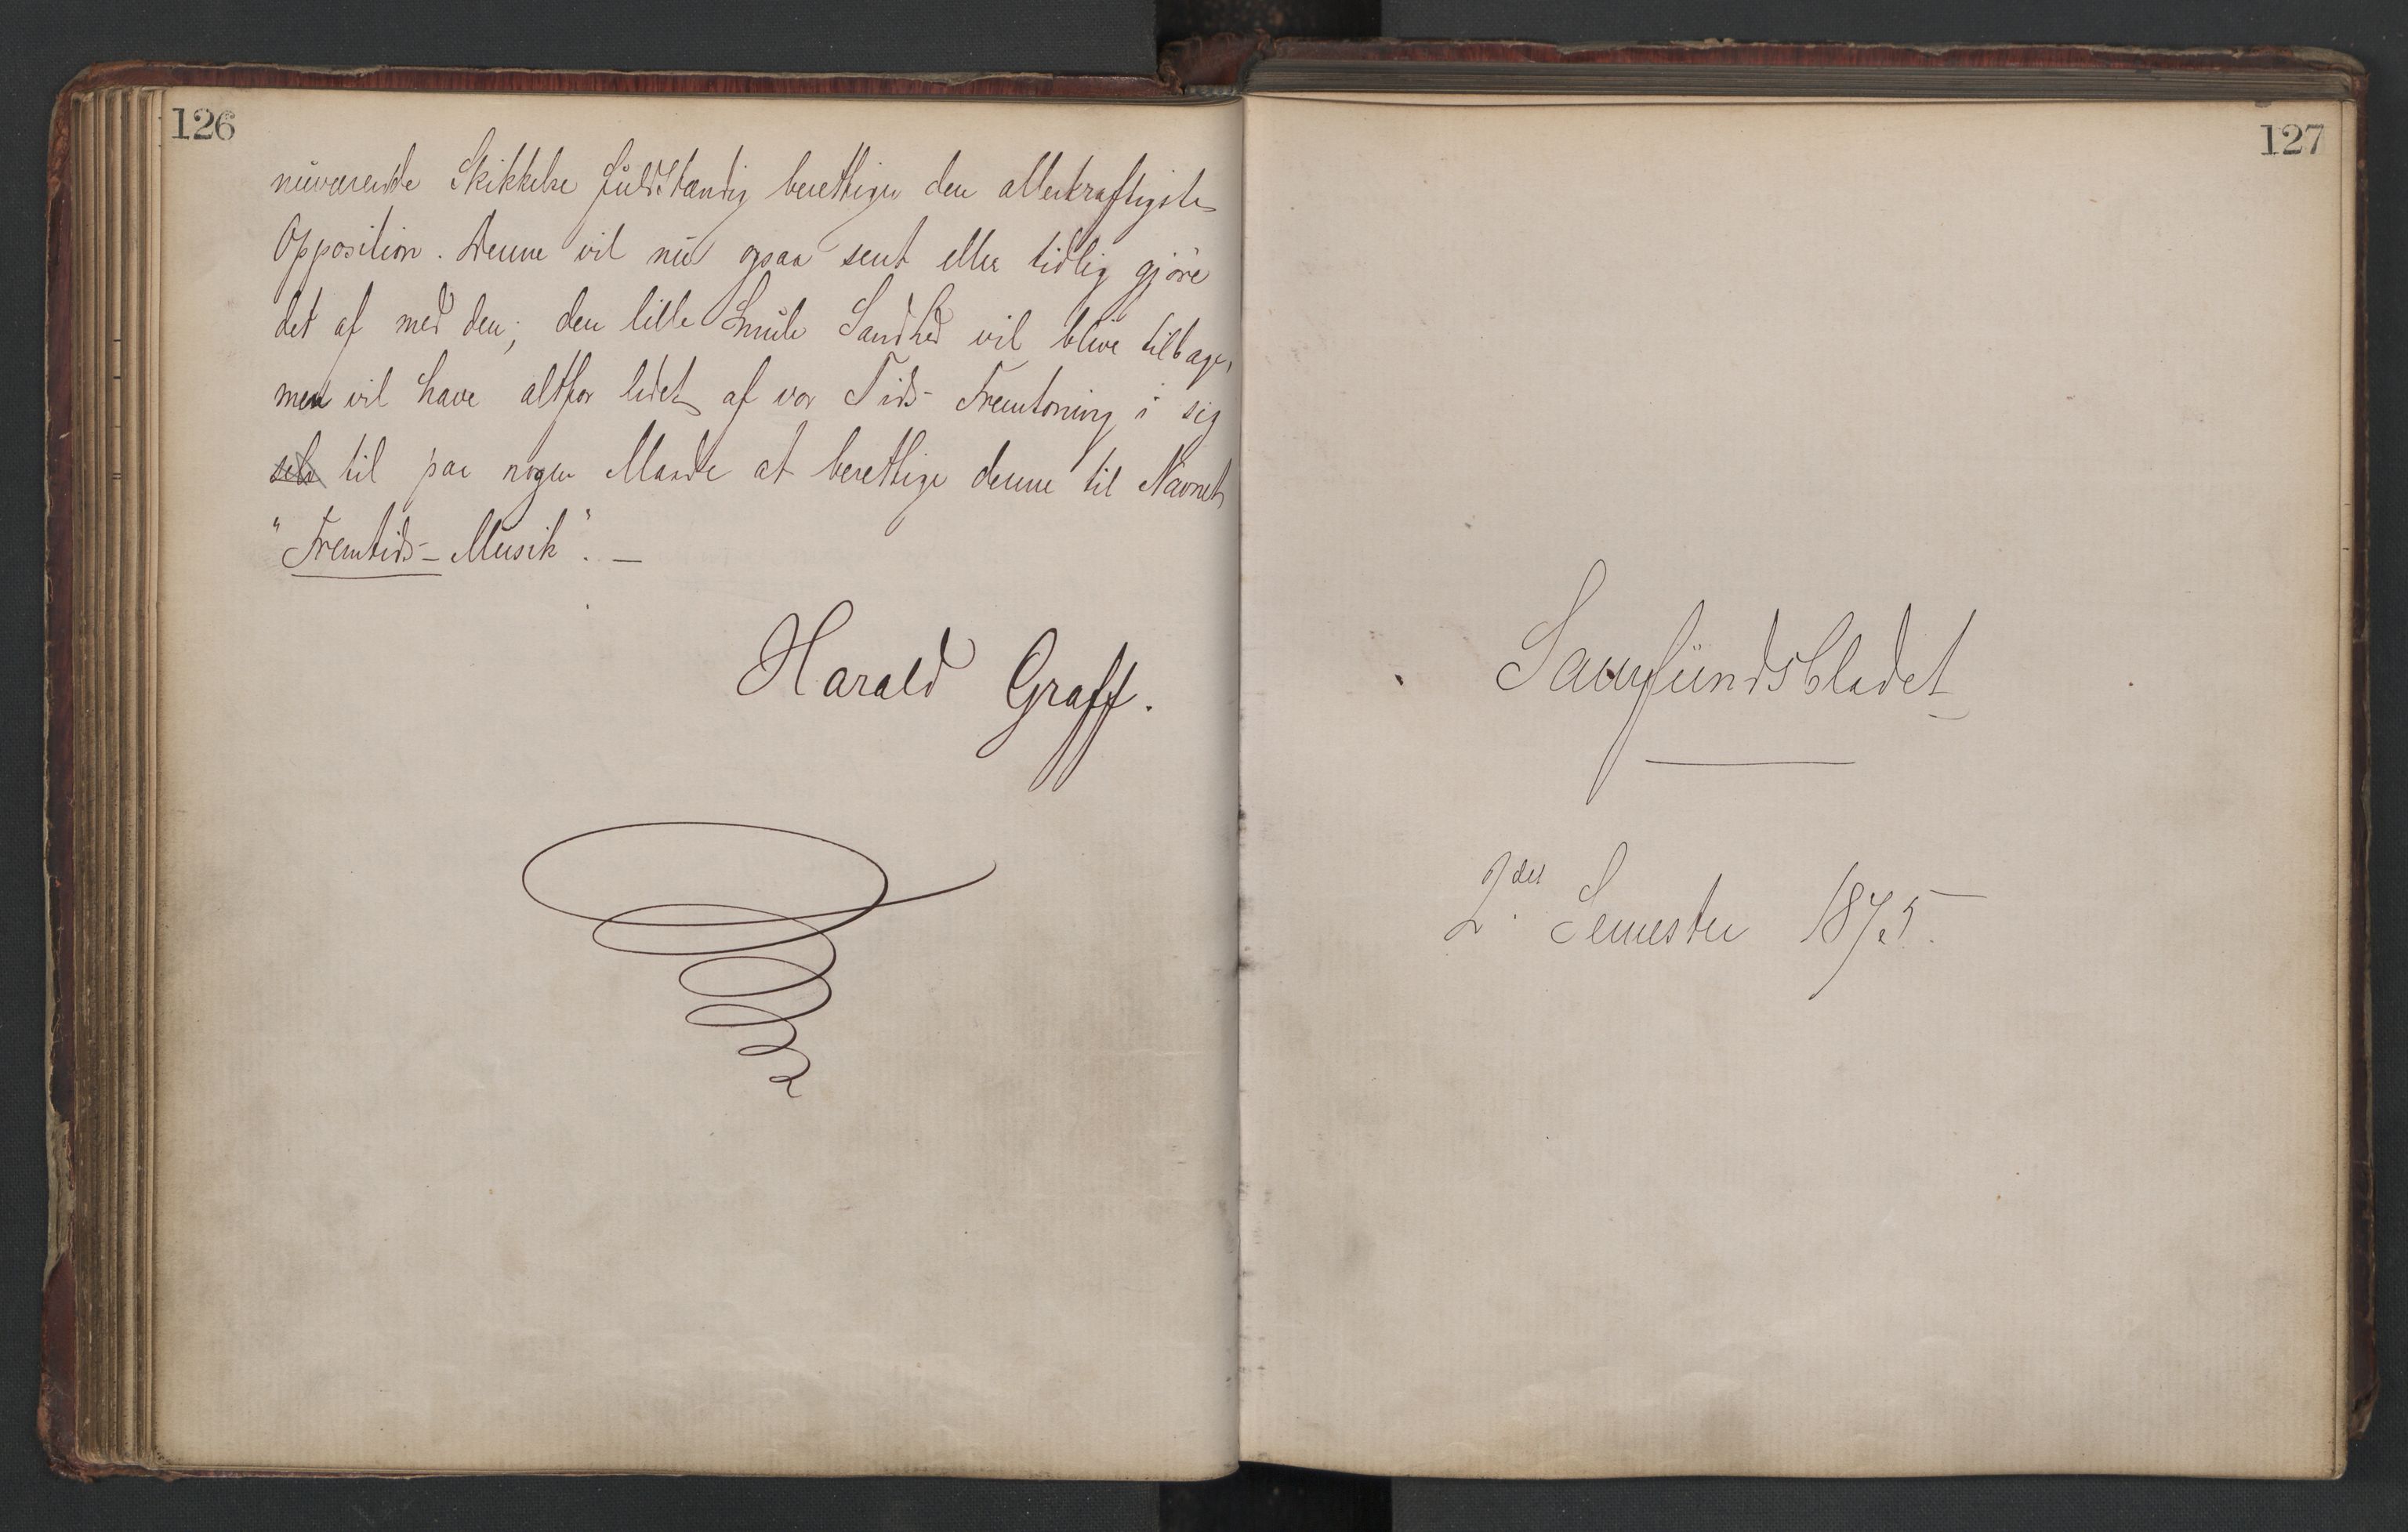 126
nuværende Skikkelse fuldstændig berettiger den allerkraftigste
Opposition. Denne vil nu ogsaa sent eller tidlig gjöre
det af med den; den lille Smule Sandhed vil blive tilbage,
men vil have altfor lidet af vor Tids- Fremtoning i sig
selv til paa nogen Maade at berettige denne til Navnet
"Fremtids- Musik". —
Harald Graff.
127
Samfundsbladet
2det Semester 1875.